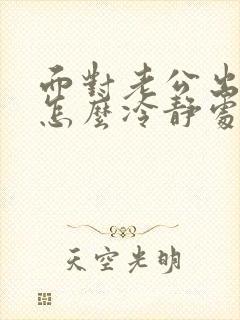 面對老公出
怎麼冷靜處
天空光明